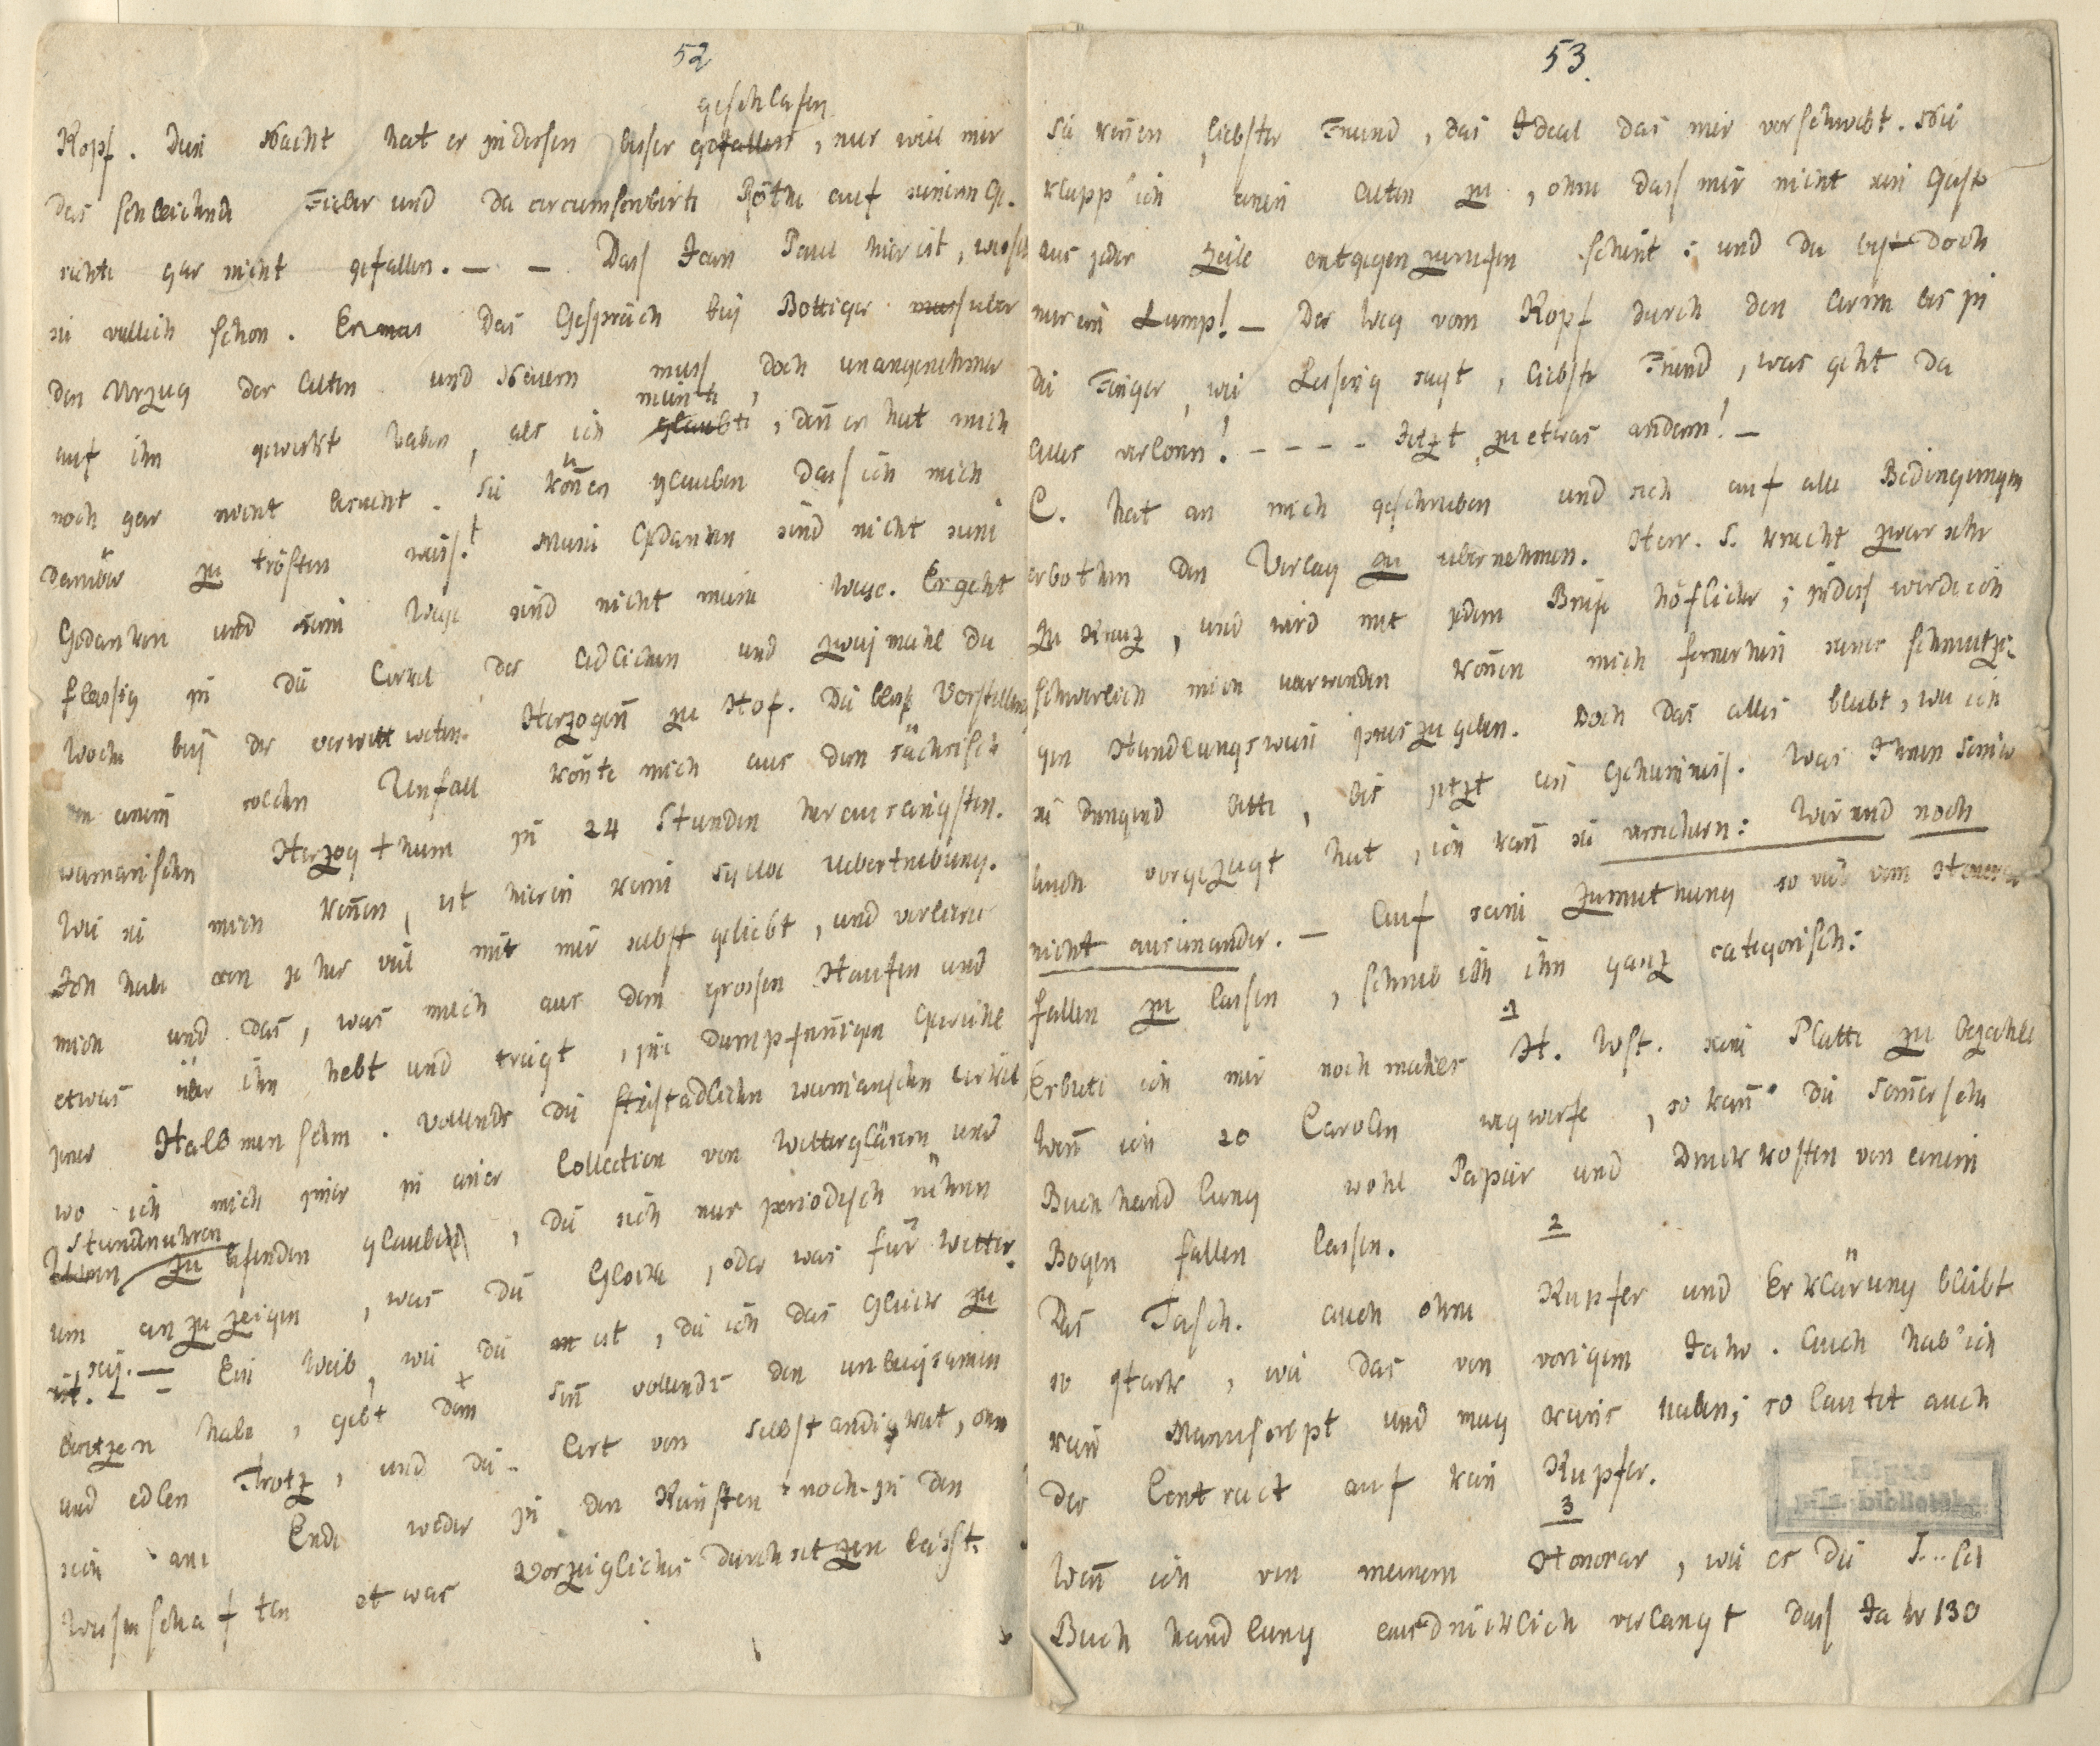 52
geschlafen
Kopf. Diese Nacht hat er indessen besser gefallen, nur will mir
das schleichende Fieber und die circumscribirte Röthe auf seinem Ge-
sichte gar nicht gefallen. — — Dass Jean Paul hier ist, wissen
sie vielleich schon. Erma das Gespräch bey Böttiger muss uber
den Vorzug der Alten und Neuern muss, doch unangenehmer
meinte
auf ihn gewirkt haben, als ich glaubte, deñ er hat mich
noch gar nicht besucht. Sie köñen glauben dass ich mich
darüber zu trösten weiss! Meine Gedanken sind nicht seine
Gedanken und seine Wege sind nicht meine Wege. Er geht
fleissig in die Cirkel der Adlichen und zweymahl die
Woche bey der verwittweten Herzogiñ zu Hof. Die blose Vorstellung
einem solchen Unfall köñte mich aus dem sächsisch
weimarischen Herzogthum in 24 Stunden herausängsten.
Wie sie mich keñen, ist hierin keine Sylbe Uebertreibung.
Ich habe von jeher viel mit mir selbst gelebt, und verliere
mich und das, was mich aus dem grossen Haufen und
etwas über ihn hebt und trägt, im dumpfsiñigen Gewühle
jener Halbmenschen. Vollends die steifstadlichen weimarschen Cirkel
wo ich mich immer in einer Collection von Wettergläsern und
Stundenuhren
Uhren zu befinden glaube, die sich nur periodisch rühren
um anzuzeigen, was die Glocke, oder was für Wetter
ist. sey. — Ein Weib, wie die ist, die ich das Glück zu
besitzen habe, giebt dem Siñ vollends den unbeugsamen
und edlen Trotz, und die Art von Selbständigkeit, ohne
sich am Ende weder in den Künsten noch in den
Wissenschaften etwas vorzügliches durchsetzen lässt.
53.
Sie keñen, liebster Freund, das Ideal das mir vorschwebt. Nie
klapp' ich einen Alten zu, ohne dass mir nicht sein Geist
aus jeder Zeile entgegenzurufen scheint: und du bist doch
nur ein Lump! — Der Weg vom Kopf durch den Arm bis in
die Finger, wie Lessing sagt, liebster Freund, was geht da
alles verloren! - - - - Jetzt zu etwas anderm! —
C. hat an mich geschrieben und sich auf alle Bedingungen
erbothen den Verlag zu übernehmen. Herr. S. kriecht zwar sehr
zu Kreuz, und wird mit jedem Briefe höflicher; indess werde ich
schwerlich mich überwinden köñen mich fernerhin seiner schmutzi-
gen Handlungsweise preiszugeben. Doch das alles bleibt, wie ich
sie dringend bitte, bis jetzt ein Geheimniss. Was Ihnen Seine
auch vorgezeigt hat, ich kañ sie versichern: Wir sind noch
nicht auseinander. — Auf seine Zumuthung so viel vom Honorar
fallen zu lassen, schrieb ich ihm ganz categorisch:
1
Erbiete ich mir nochmahls H. Wst. seine Platte zu bezahlen
Weñ ich 20 Carolin wegwerfe, so kañ die Somersche
Buchhandlung wohl Papier und Druckkosten von einem
Bogen fallen lassen.
2
Das Tasch. auch ohne Kupfer und Erklärung bleibt
so stark, wie das vom vorigem Jahr. Auch hab' ich
kein Manuscript und mag keins haben; so lautet auch
der Contract auf kein Kupfer.
3
Weñ ich von meinem Honorar, wie es die S...sch
Buchhandlung ausdrücklich verlangt dass Jahr 130